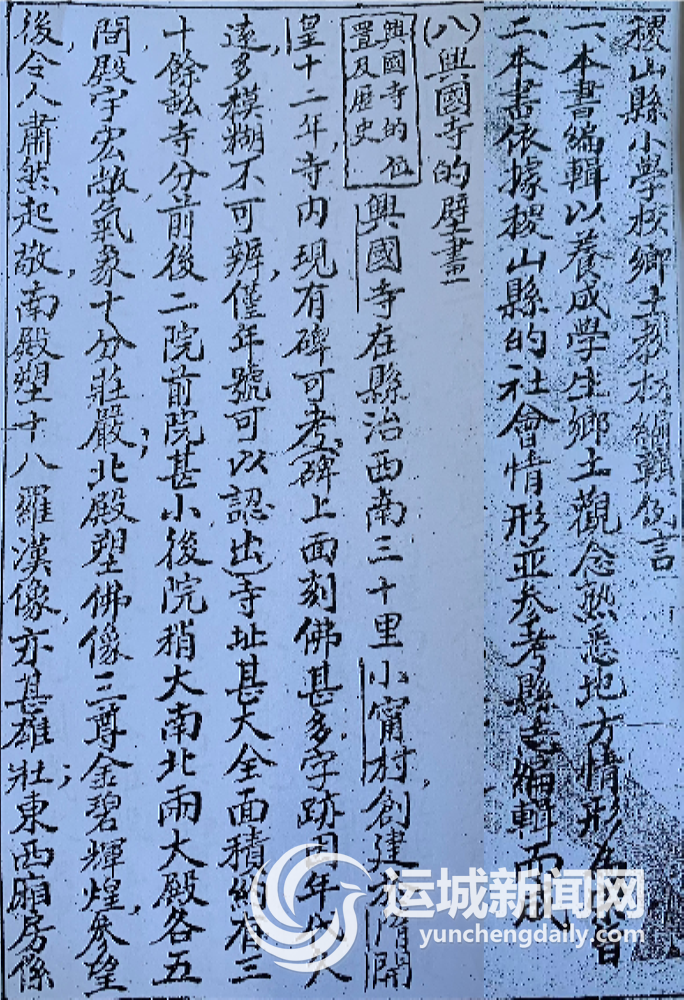 稷山縣小學校鄉土教材編輯例言
一、本書編輯以養成學生鄉土觀念熟悉地方情形
二、本書依據稷山縣的社會情形並參考縣志編輯而
(八)興國寺的壁畫
興國寺的位
置及歷史
興國寺在縣治西南三十里小甯村,創建於隋開
皇十二年,寺内現有碑可考(碑上面刻佛甚多,字跡因年代久
遠,多模糊不可辨,僅年號可以認出)寺址甚大全面積約有三
十餘畝寺分前後二院前院甚小後院稍大南北兩大殿各五
間,殿宇宏敞,氣象十分莊嚴;北殿塑佛像三尊金碧輝煌,參望
後令人肅然起敬,南殿塑十八羅漢像,亦甚雄壯;東西廂房係
运城新闻网
yunchengdaily.com